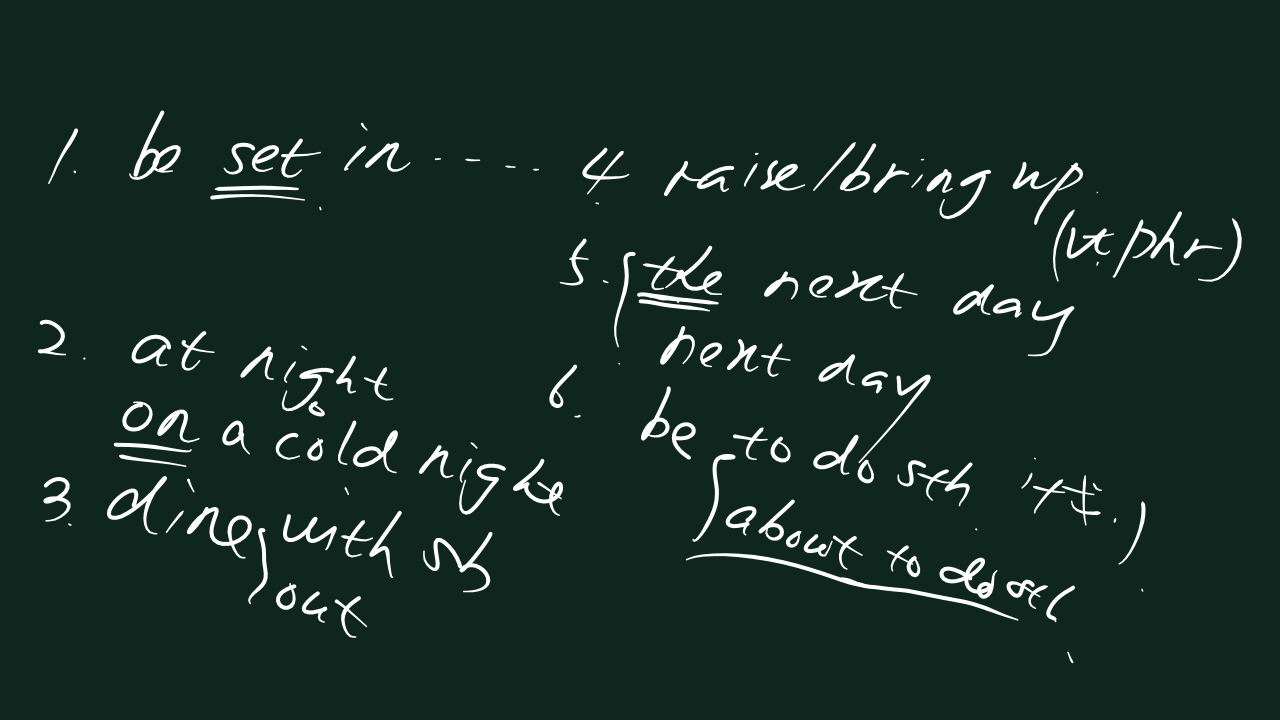 1. be set in ·····
2. at night
on a cold night
3. dine with sb
out
4. raise/bring up.
(vt. phr)
5. the next day
next day
6. be to do sth
about to do sth